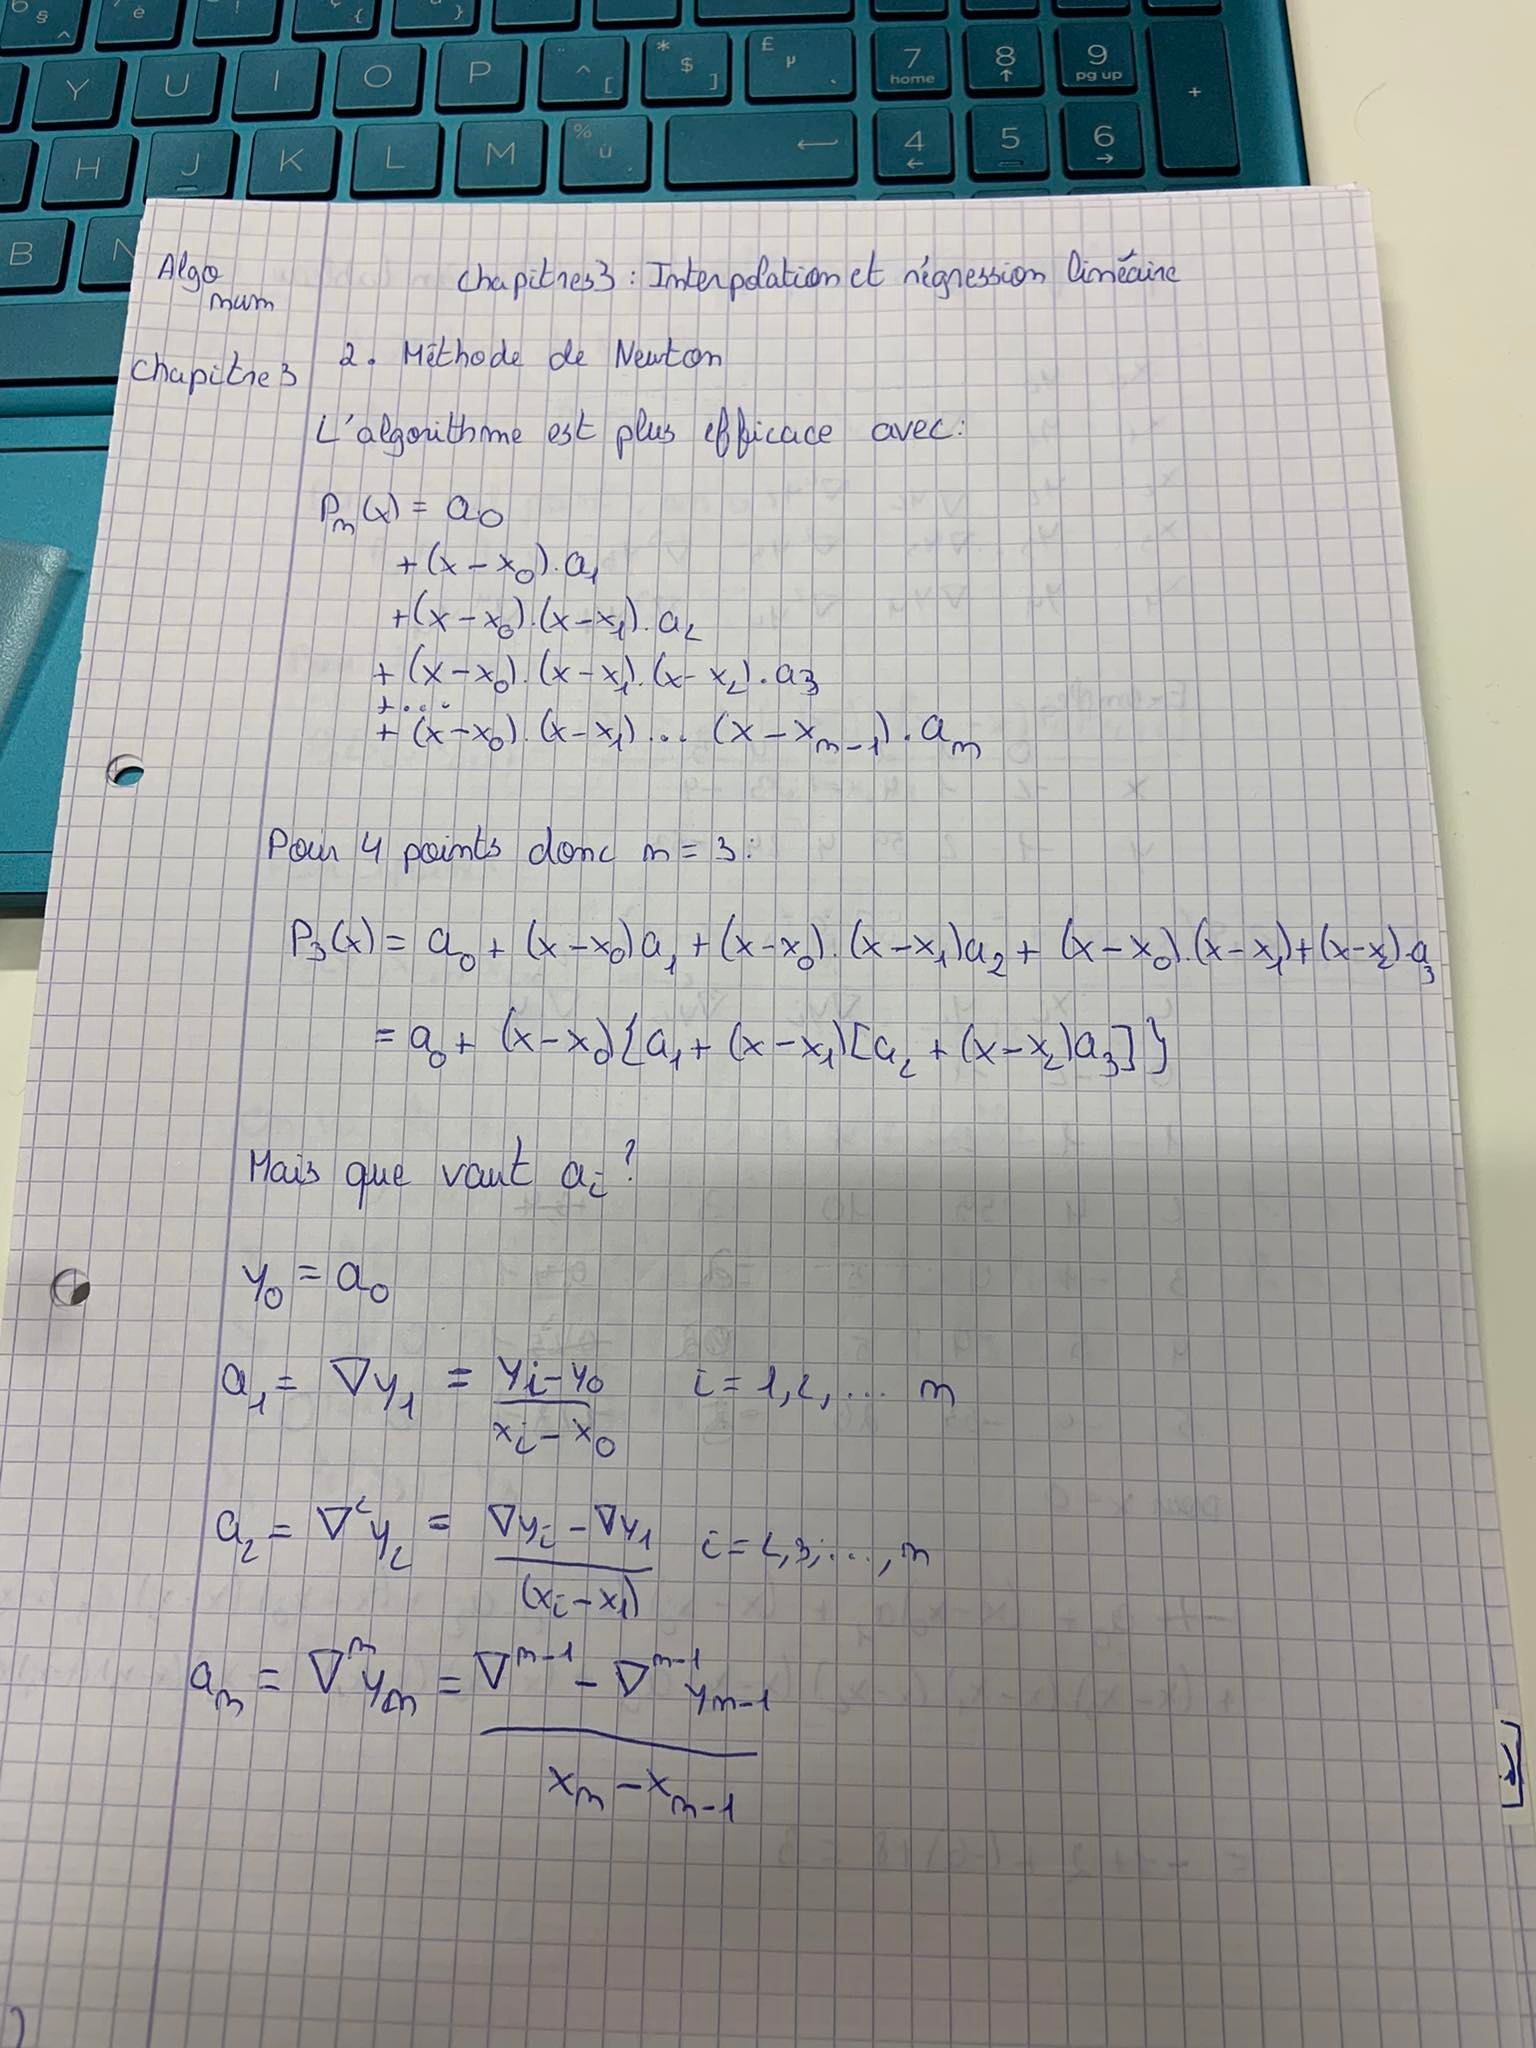 Y U I O P ^ [ * $ ] £ µ 7 home 8 ↑ 9 pg up +
H J K L M % ù ← 4 ← 5 6 →
B N
Algo
num
Chapitre 3 : Interpolation et régression linéaire
Chapitre 3
2. Méthode de Newton
L'algorithme est plus efficace avec :
Pn(x) = a0
+ (x - x0) . a1
+ (x - x0) . (x - x1) . a2
+ (x - x0) . (x - x1) . (x - x2) . a3
+ ...
+ (x - x0) . (x - x1) ... (x - xn-1) . an
Pour 4 points donc n = 3 :
P3(x) = a0 + (x - x0)a1 + (x - x0) . (x - x1)a2 + (x - x0) . (x - x1) + (x - x2) . a3
= a0 + (x - x0){a1 + (x - x1)[a2 + (x - x2)a3]}
Mais que vaut ai ?
y0 = a0
a1 = ∇y1 = (yi - y0) / (xi - x0) i = 1, 2, ... n
a2 = ∇²y2 = (∇yi - ∇y1) / (xi - x1) i = 2, 3, ..., n
an = ∇ⁿyn = (∇ⁿ⁻¹ - ∇ⁿ⁻¹yn-1) / (xn - xn-1)